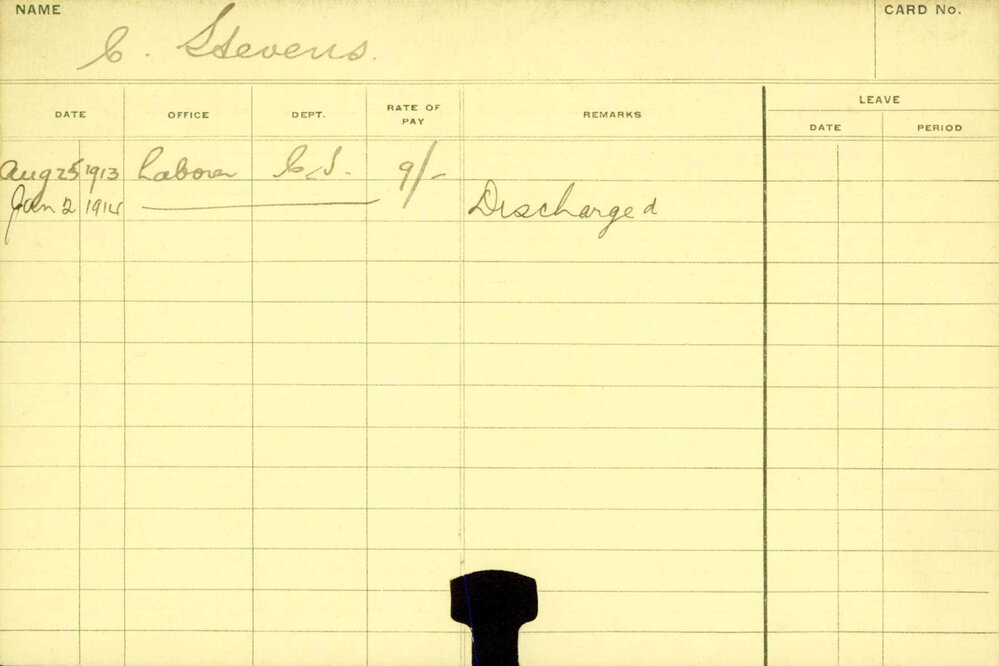 NAME
CARD No.
C. Stevens.
DATE OFFICE DEPT. RATE OF PAY REMARKS LEAVE
DATE PERIOD
Aug 25 1913 Laborer 9/-
Jan 2 1914 Discharged